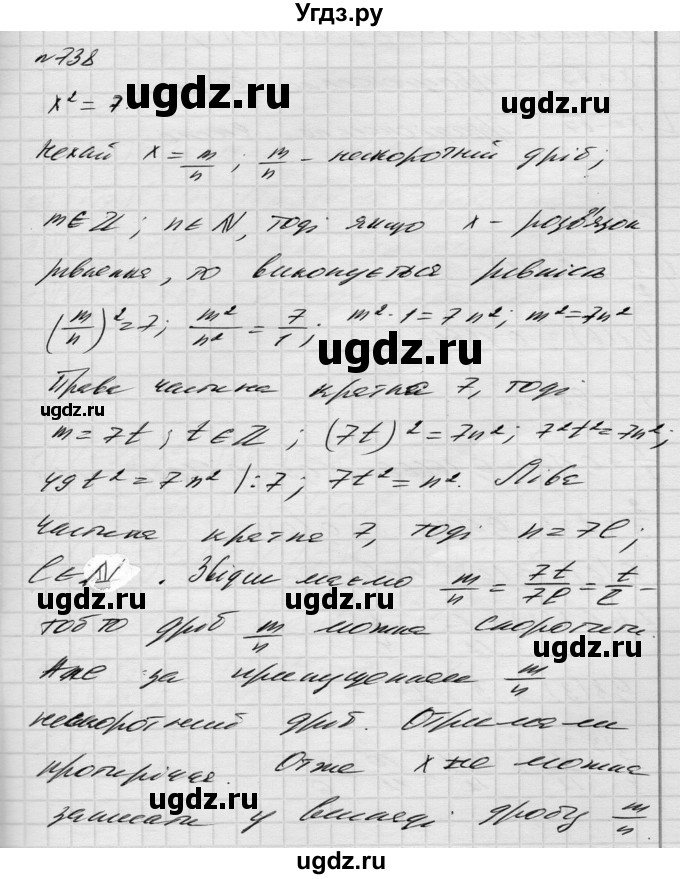 Угдз.ру
№738
x² = 7. ugdz.ru
Нехай x = m/n ; m/n - нескоротний дріб;
m∈ℤ; n∈N, тоді якщо x - розв'язок
рівняння, то виконується рівність
(m/n)² = 7; m²/n² = 7/1; m²·1 = 7n²; m² = 7n²
ugdz.ru
Права частина кратна 7, тоді
ugdz.ru
m = 7t; t∈ℤ; (7t)² = 7n²; 7²t² = 7n²;
49t² = 7n² |:7; 7t² = n². Ліва
ugdz.ru
частина кратна 7, тоді n = 7l;
l∈N. Звідси маємо m/n = 7t/7l = t/l -
ugdz.ru ugdz.ru
тобто дріб m/n можна скоротити.
Але за припущенням m/n
ugdz.ru
нескоротний дріб. Отримали
протиріччя. Отже x не можна
ugdz.ru
записати у вигляді дробу m/n.
ugdz.ru